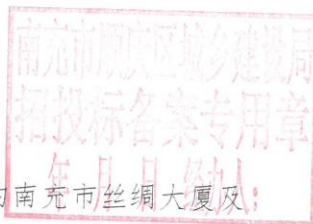 南充市顺庆区城乡建设局
招投标备案专用章
年 月 日 经办人：
南充市丝绸大厦及